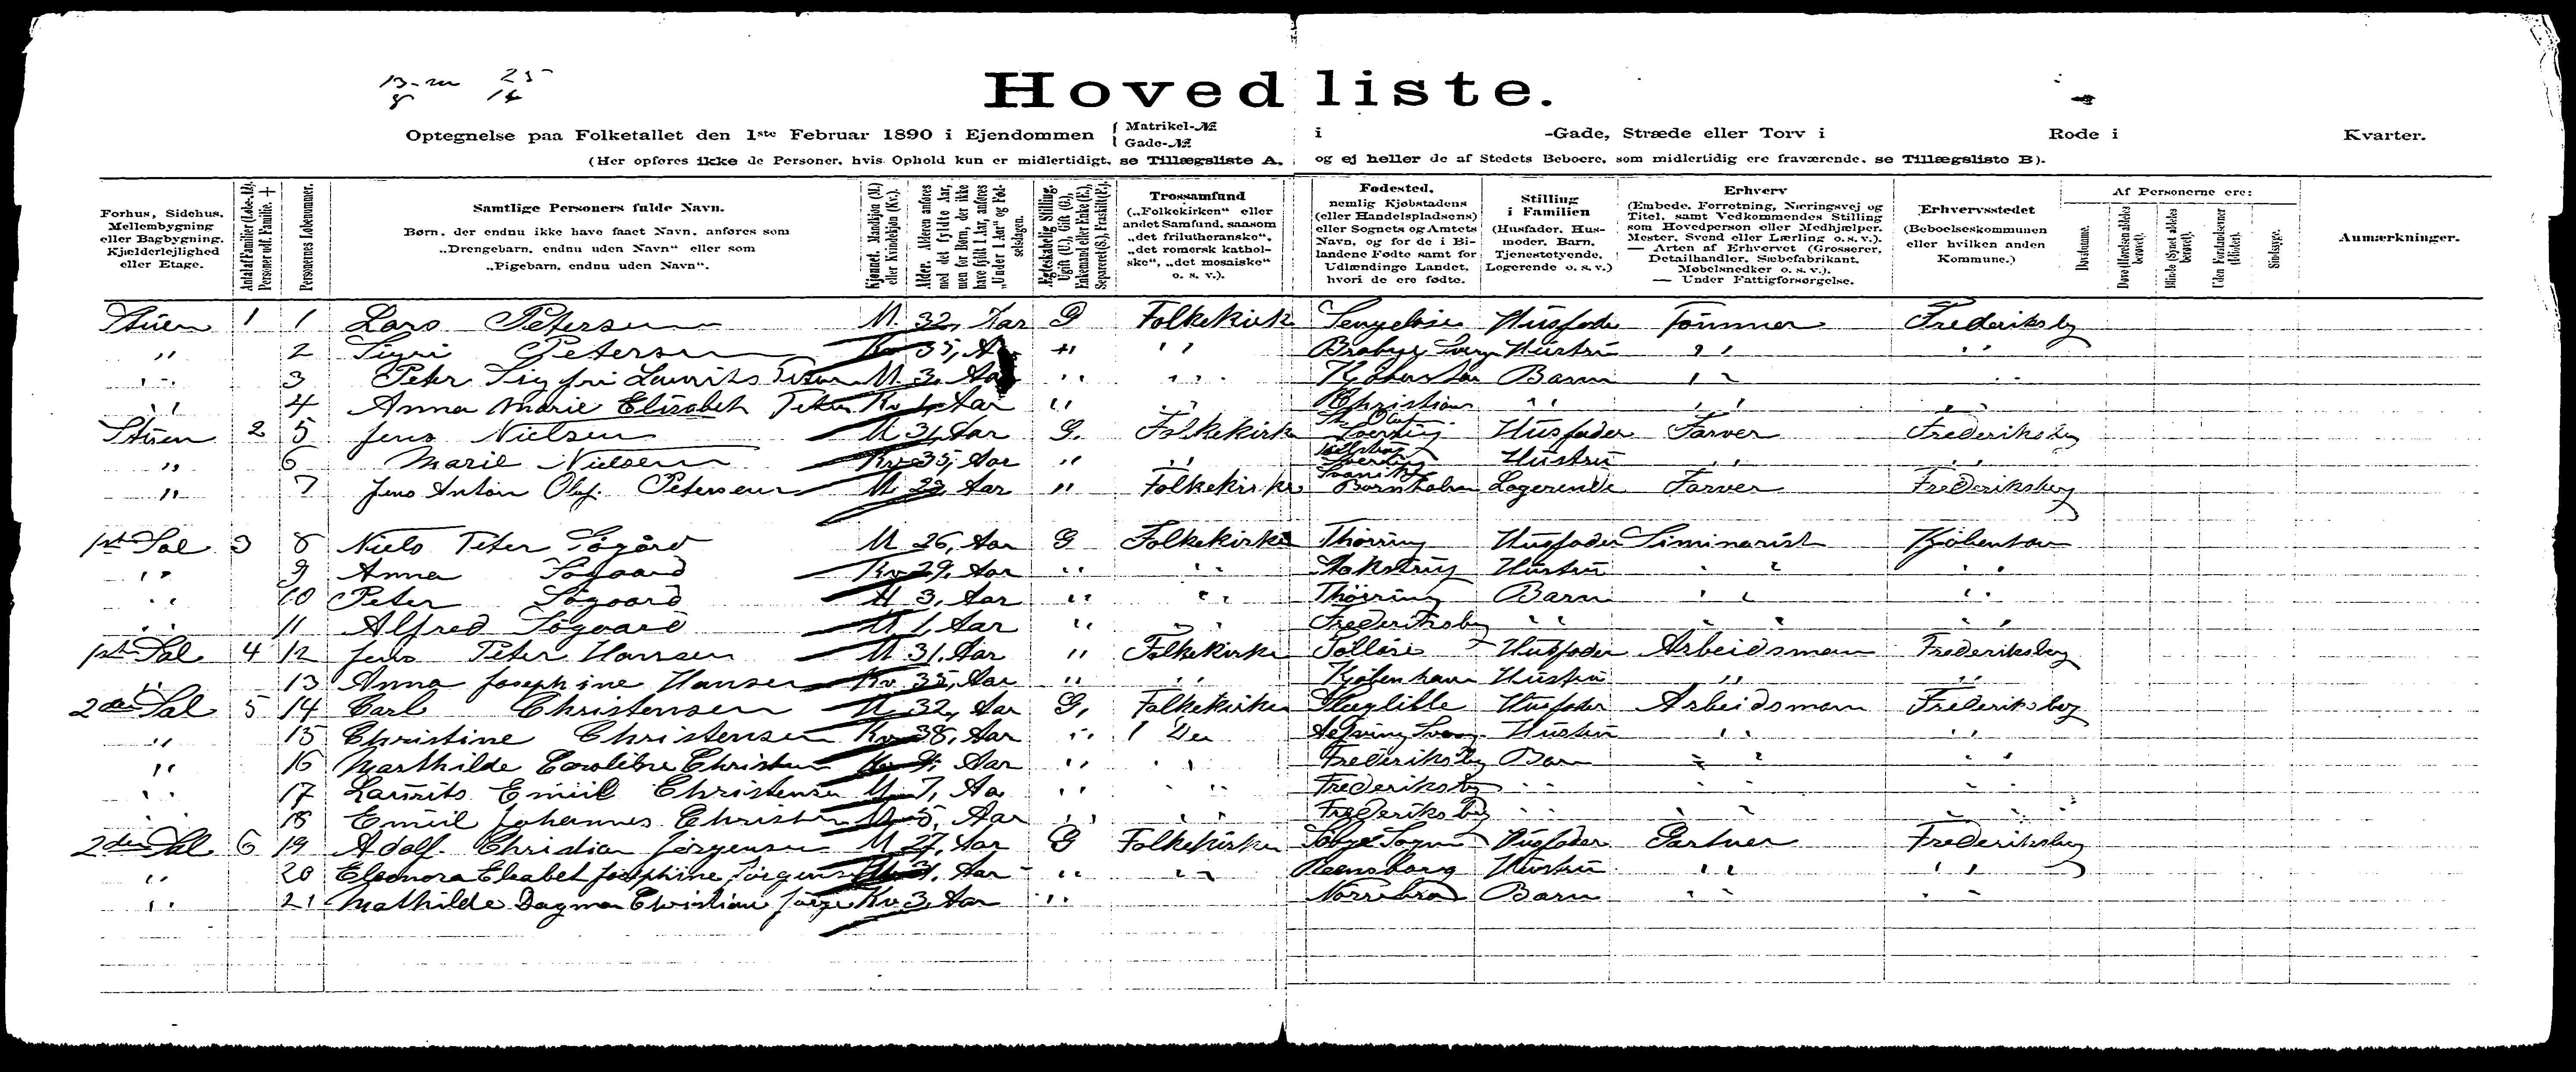 13 - m 25
8 14
Hovedliste.
Optegnelse paa Folketallet den 1ste Februar 1890 i Ejendommen { Matrikel-№ Gade-№ i -Gade, Stræde eller Torv i Rode i Kvarter.
(Her opføres ikke de Personer, hvis Ophold kun er midlertidigt, se Tillægsliste A, og ej heller de af Stedets Beboere, som midlertidig ere fraværende, se Tillægsliste B).
Forhus, Sidehus, Mellembygning eller Bagbygning. Kjælderlejlighed eller Etage.
Antal af Familier (Løbe-№). Personer udf. Familie. +
Personernes Løbenummer.
Samtlige Personers fulde Navn.
Børn, der endnu ikke have faaet Navn, anføres som „Drengebarn, endnu uden Navn“ eller som „Pigebarn, endnu uden Navn“.
Kjønnet. Mandkjøn (M.) eller Kvindekjøn (Kv.).
Alder. Alderen anføres med det fyldte Aar, men for Børn, der ikke have fyldt 1 Aar, anføres „Under 1 Aar“ og Fødselsdagen.
Ægteskabelig Stilling. Ugift (U.), Gift (G.), Enkemand eller Enke (E.), Separeret (S.), Fraskilt (F.).
Trossamfund („Folkekirken“ eller andet Samfund, saasom „det frilutheranske“, „det romersk katholske“, „det mosaiske“ o. s. v.).
Fødested, nemlig Kjøbstadens (eller Handelspladsens) eller Sognets og Amtets Navn, og for de i Bilandene Fødte samt for Udlændinge Landet, hvori de ere fødte.
Stilling i Familien (Husfader, Husmoder, Barn, Tjenestetyende, Logerende o. s. v.)
Erhverv (Embede, Forretning, Næringsvej og Titel, samt Vedkommendes Stilling som Hovedperson eller Medhjælper, Mester, Svend eller Lærling o. s. v.). — Arten af Erhvervet (Grosserer, Detailhandler, Sæbefabrikant, Møbelsnedker o. s. v.). — Under Fattigforsørgelse.
Erhvervsstedet (Beboelseskommunen eller hvilken anden Kommune.)
Af Personerne ere:
Døvstumme.
Døve (Hørelsen aldeles berøvet).
Blinde (Synet aldeles berøvet).
Uden Forstandsevner (Idioter).
Sindssyge.
Anmærkninger.
Stuen 1 1 Lars Petersen M. 32, Aar G Folkekirk Sengeløse Husfader Tømmer Frederiksbg
" 2 Sigri Petersen Kv 35, A " " Hustru " "
" 3 Peter Sigfri Laurits M. 3, Aar " " Kjøbenhav Barn " "
" 4 Anna Marie Elisabeth Kv 1, Aar " " Christian " " "
Stuen 2 5 Jens Nielsen M 31, Aar G. Folkekirk Husfader Farver Frederiksbg
" 6 Marie Nielsen Kv 35, Aar " " Hustru " "
" 7 Jens Anton Olaf. Petersen M. 23, Aar " Folkekirke Svanike Bornholm Logerende Farver Frederiksberg
1ste Sal 3 8 Niels Peter Søgård M 26, Aar G Folkekirke Thørring Husfader Siminarist Kjøbenhav
" 9 Anna Søgaard Kv 29, Aar " " Stokstrup Hustru " "
" 10 Peter Søgaard M 3, Aar " " Thørring Barn " "
" 11 Alfred Søgaard M 1, Aar " " Frederiksbg " " "
1ste Sal 4 12 Jens Peter Hansen M 31, Aar " Folkekirke Tolløse Husfader Arbeidsman Frederiksberg
" 13 Anna Josephine Hansen Kv 35, Aar " " Kjøbenhavn Hustru " "
2den Sal 5 14 Carl Christensen M 32, Aar G, Folkekirken Husfader Arbeidsman Frederiksberg
" 15 Christine Christensen Kv 38, Aar " Hustru " "
" 16 Marthilde Caroline Christen Kv 9, Aar " " Frederiksbg Barn " "
" 17 Laurits Emiil Christensen M 7, Aa " " Frederiksbg " " "
" 18 Emiil Johannes Christen M 5, Aar " " Frederiksbg " " "
2den Sal 6 19 Adolf. Christian Jørgensen M 27, Aar G Folkekirken Sogn Husfader Gartner Frederiksberg
" 20 Eleonora Elsabet Josephine Jörgens 31, Aar " " Hustru " "
" 21 Mathilde Dagmar Christiane Jörge Kv 3, Aar " Nørrebro Barn " "